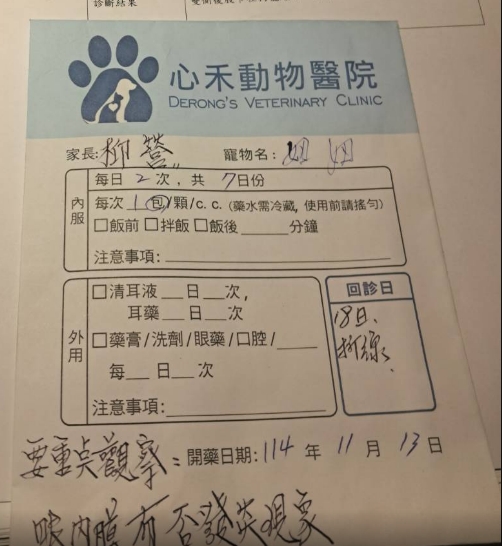 診斷結果
心禾動物醫院
DERONG'S VETERINARY CLINIC
家長: 柳營 寵物名: 妞妞
每日 2 次，共 7 日份
內服
每次 1 包/顆/c.c. (藥水需冷藏, 使用前請搖勻)
□飯前 □拌飯 □飯後____分鐘
注意事項:
外用
□清耳液__日__次,
耳藥__日__次
□藥膏/洗劑/眼藥/口腔/____
每__日__次
注意事項:
回診日
18日、
拆線
要重点觀察: 開藥日期: 114 年 11 月 13 日
眼內膜有否發炎現象